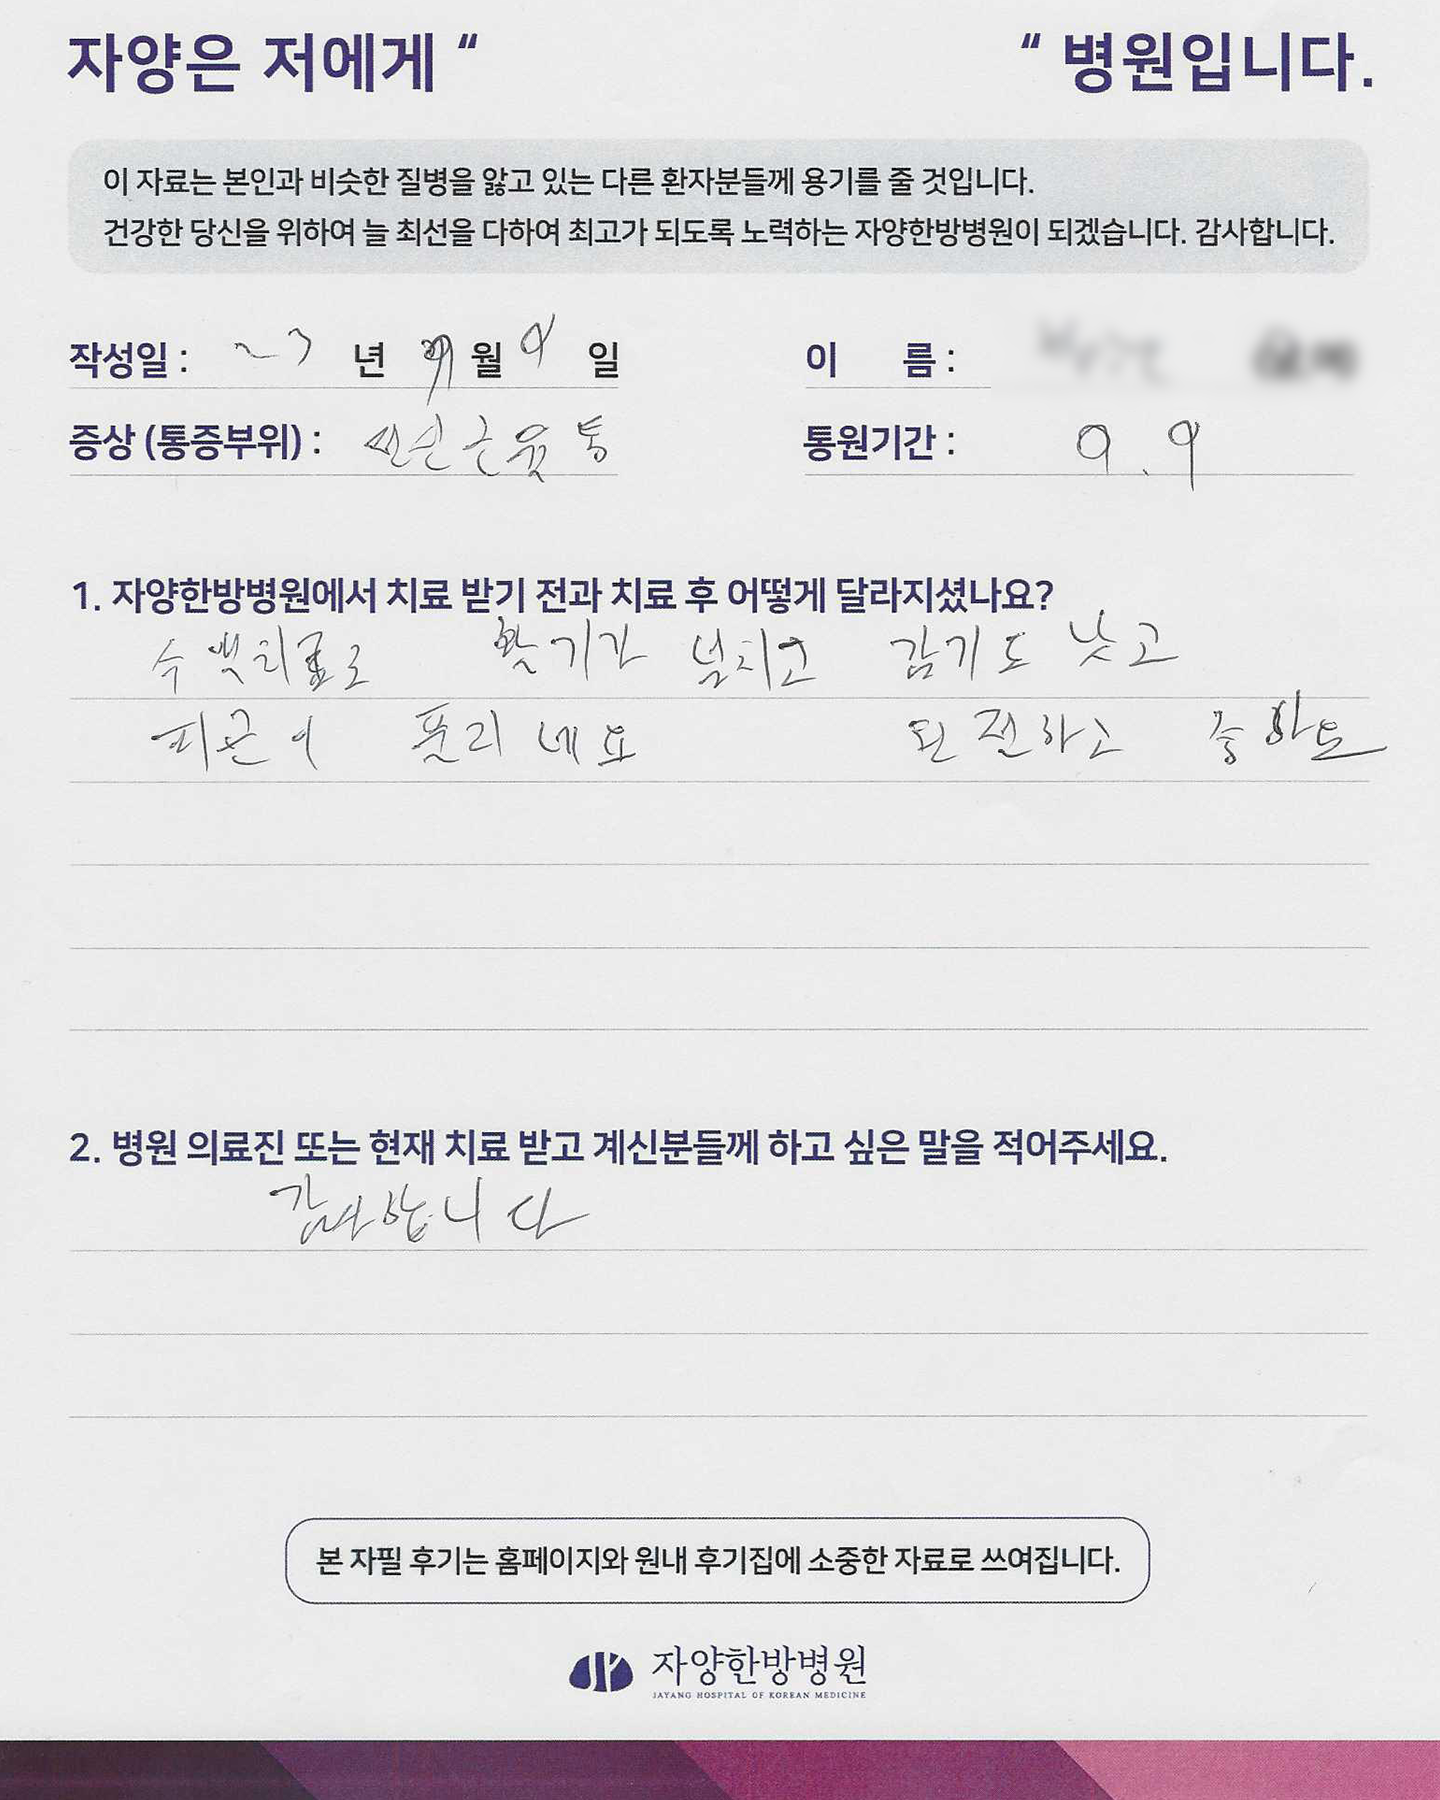 자양은 저에게 “ “ 병원입니다.
이 자료는 본인과 비슷한 질병을 앓고 있는 다른 환자분들께 용기를 줄 것입니다.
건강한 당신을 위하여 늘 최선을 다하여 최고가 되도록 노력하는 자양한방병원이 되겠습니다. 감사합니다.
작성일 : 23 년 9 월 9 일 이 름 :
증상 (통증부위) : 전신근육통 통원기간 : 9.9
1. 자양한방병원에서 치료 받기 전과 치료 후 어떻게 달라지셨나요?
수액치료로 활기가 넘치고 감기도 낫고
피곤이 풀리네요
2. 병원 의료진 또는 현재 치료 받고 계신분들께 하고 싶은 말을 적어주세요.
감사합니다
본 자필 후기는 홈페이지와 원내 후기집에 소중한 자료로 쓰여집니다.
자양한방병원
JAYANG HOSPITAL OF KOREAN MEDICINE